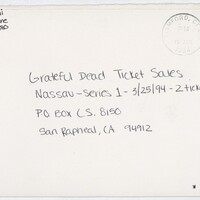 Grateful Dead Ticket Sales
Nassau-Series 1 - 3/25/94 - 2 tick
PO Box C.S. 8150
San Rapheal, CA 94912